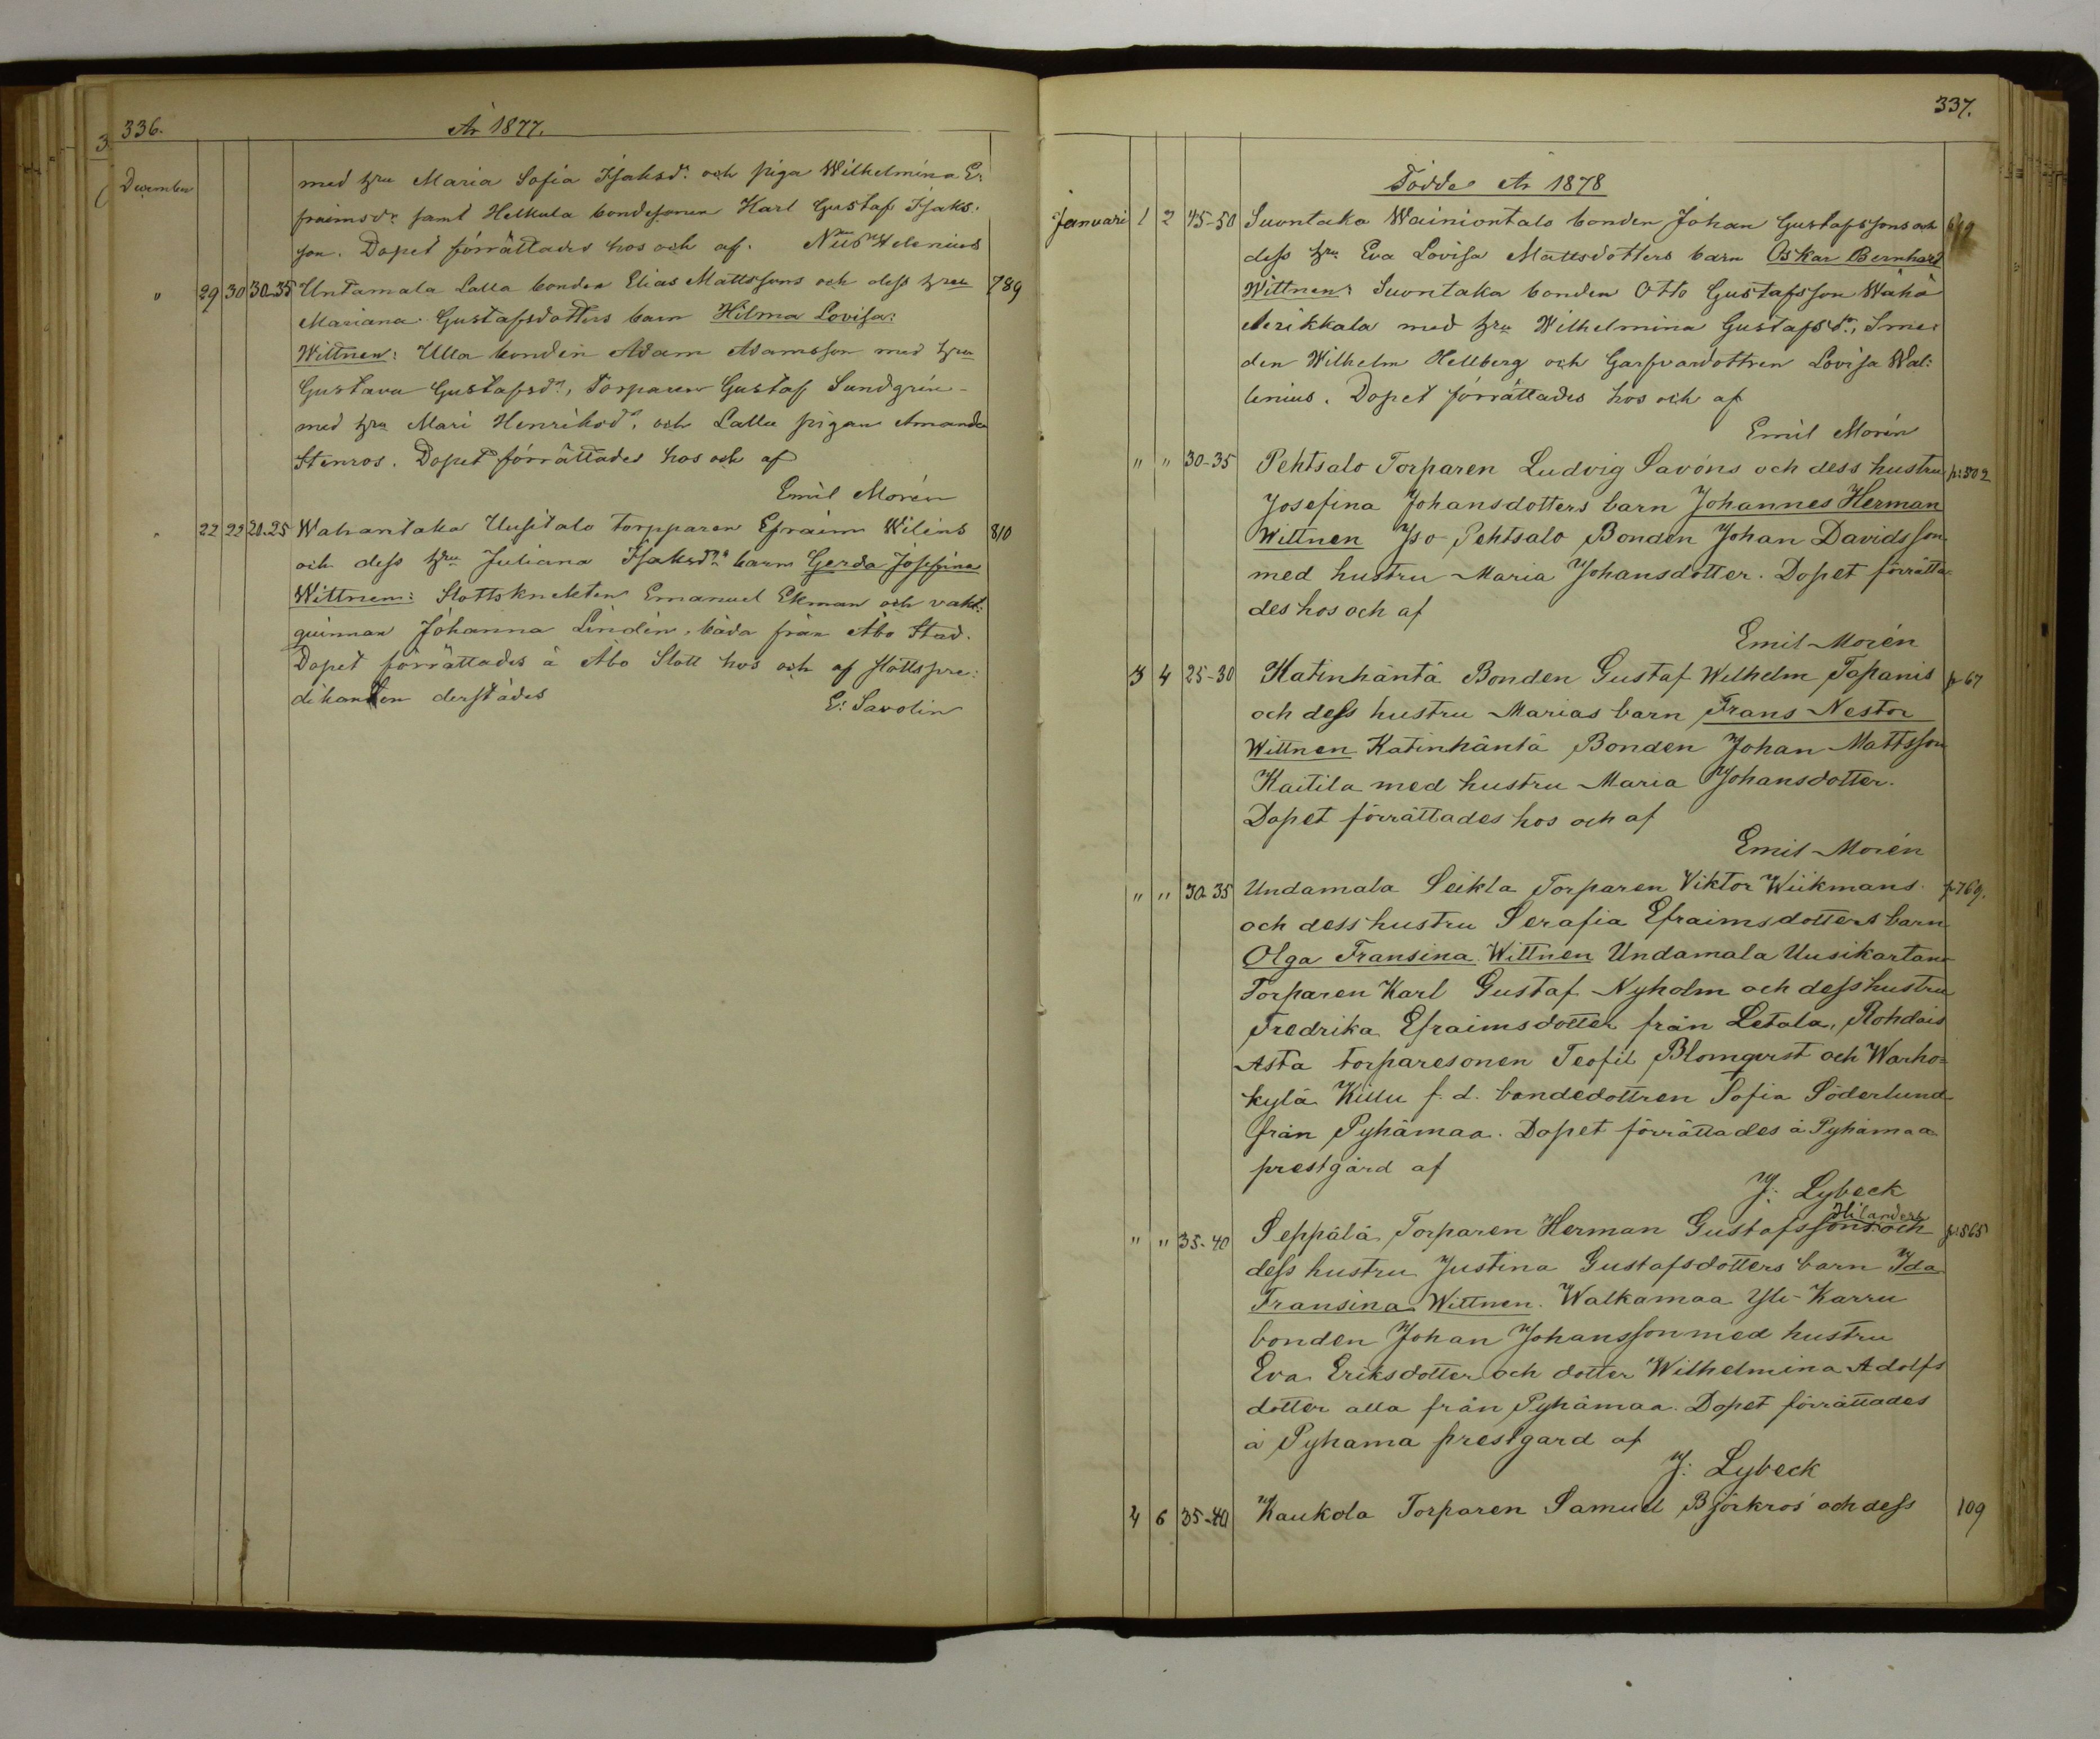 336.
År 1877.
December
med hru Maria Sofia Isaksdr och piga Wilhelmina E:
fraimsdr samt Helkula bondesonen Karl Gustaf Isaks:
son. Dopet förrättades hos och af. Nils Helenius
" 29 30 30-35 Untamala Lalla bonden Elias Mattssons och dess hru 789
Mariana Gustafsdotters barn Hilma Lovisa:
Wittnen: Ulla bonden Adam Adamsson med hru
Gustava Gustafsdr, Torparen Gustaf Sundgrén
med hru Mari Henriksdr, och Lalla pigan Amanda
Stenros. Dopet förrättades hos och af
Emil Morén
" 22 22 20-25 Wahantaka Uusitalo torpparen Efraim Wiléns 810
och dess hru Juliana Isaksdrs barn Gerda Josefina
Wittnen: Slottsknekten Emanuel Ekman och vakt:
quinnan Johanna Lindén, båda från Åbo Stad.
Dopet förrättades å Åbo Slott hos och af slottspre:
dikanten derstädes
E: Savolin
337.
Födde År 1878
Januari 1 2 45-50 Suontaka Wainiontalo bonden Johan Gustafssons och
dess hru Eva Lovisa Mattsdotters barn Oskar Bernhard
Wittnen: Suontaka bonden Otto Gustafsson Wähä
Aerikkala med hru Wilhelmina Gustafsdr, Sme:
den Wilhelm Hellberg och Garfvardottren Lovisa Wal:
lenius. Dopet förrättades hos och af
Emil Morén
" " 30-35 Pehtsalo Torparen Ludvig Savóns och dess hustru p:302
Josefina Johansdotters barn Johannes Herman
Wittnen Iso Pehtsalo Bonden Johan Davidsson
med hustru Maria Johansdotter. Dopet förrätta
des hos och af
Emil Morén
3 4 25-30 Katinhäntä Bonden Gustaf Wilhelm Tapanis p 67
och dess hustru Marias barn Frans Nestor
Wittnen Katinhäntä Bonden Johan Mattsson
Kaitila med hustru Maria Johansdotter.
Dopet förrättades hos och af
Emil Morén
" " 30-35 Undamala Seikla Torparen Viktor Wiikmans p 769.
och dess hustru Serafia Efraimsdotters barn
Olga Fransina Wittnen Undamala Uusikartano
Torparen Karl Gustaf Nyholm och dess hustru
Fredrika Efraimsdotter från Letala, Rohdais
Asta torparesonen Teofil Blomqvist och Warho=
kylä Killu f. d. bondedottren Sofia Söderlund
från Pyhämaa. Dopet förrättades å Pyhämaa
prestgård af
J: Lybeck
Hilanders
" " 35-40 Seppälä Torparen Herman Gustafssons och p:565
dess hustru Justina Gustafsdotters barn Ida
Fransina Wittnen. Walkamaa Yli-Karru
bonden Johan Johansson med hustru
Eva Eriksdotter och dotter Wilhelmina Adolfs
dotter alla från Pyhämaa. Dopet förrättades
å Pyhama prestgard af
J: Lybeck
4 6 35-40 Kaukola Torparen Samuel Björkros och dess 109